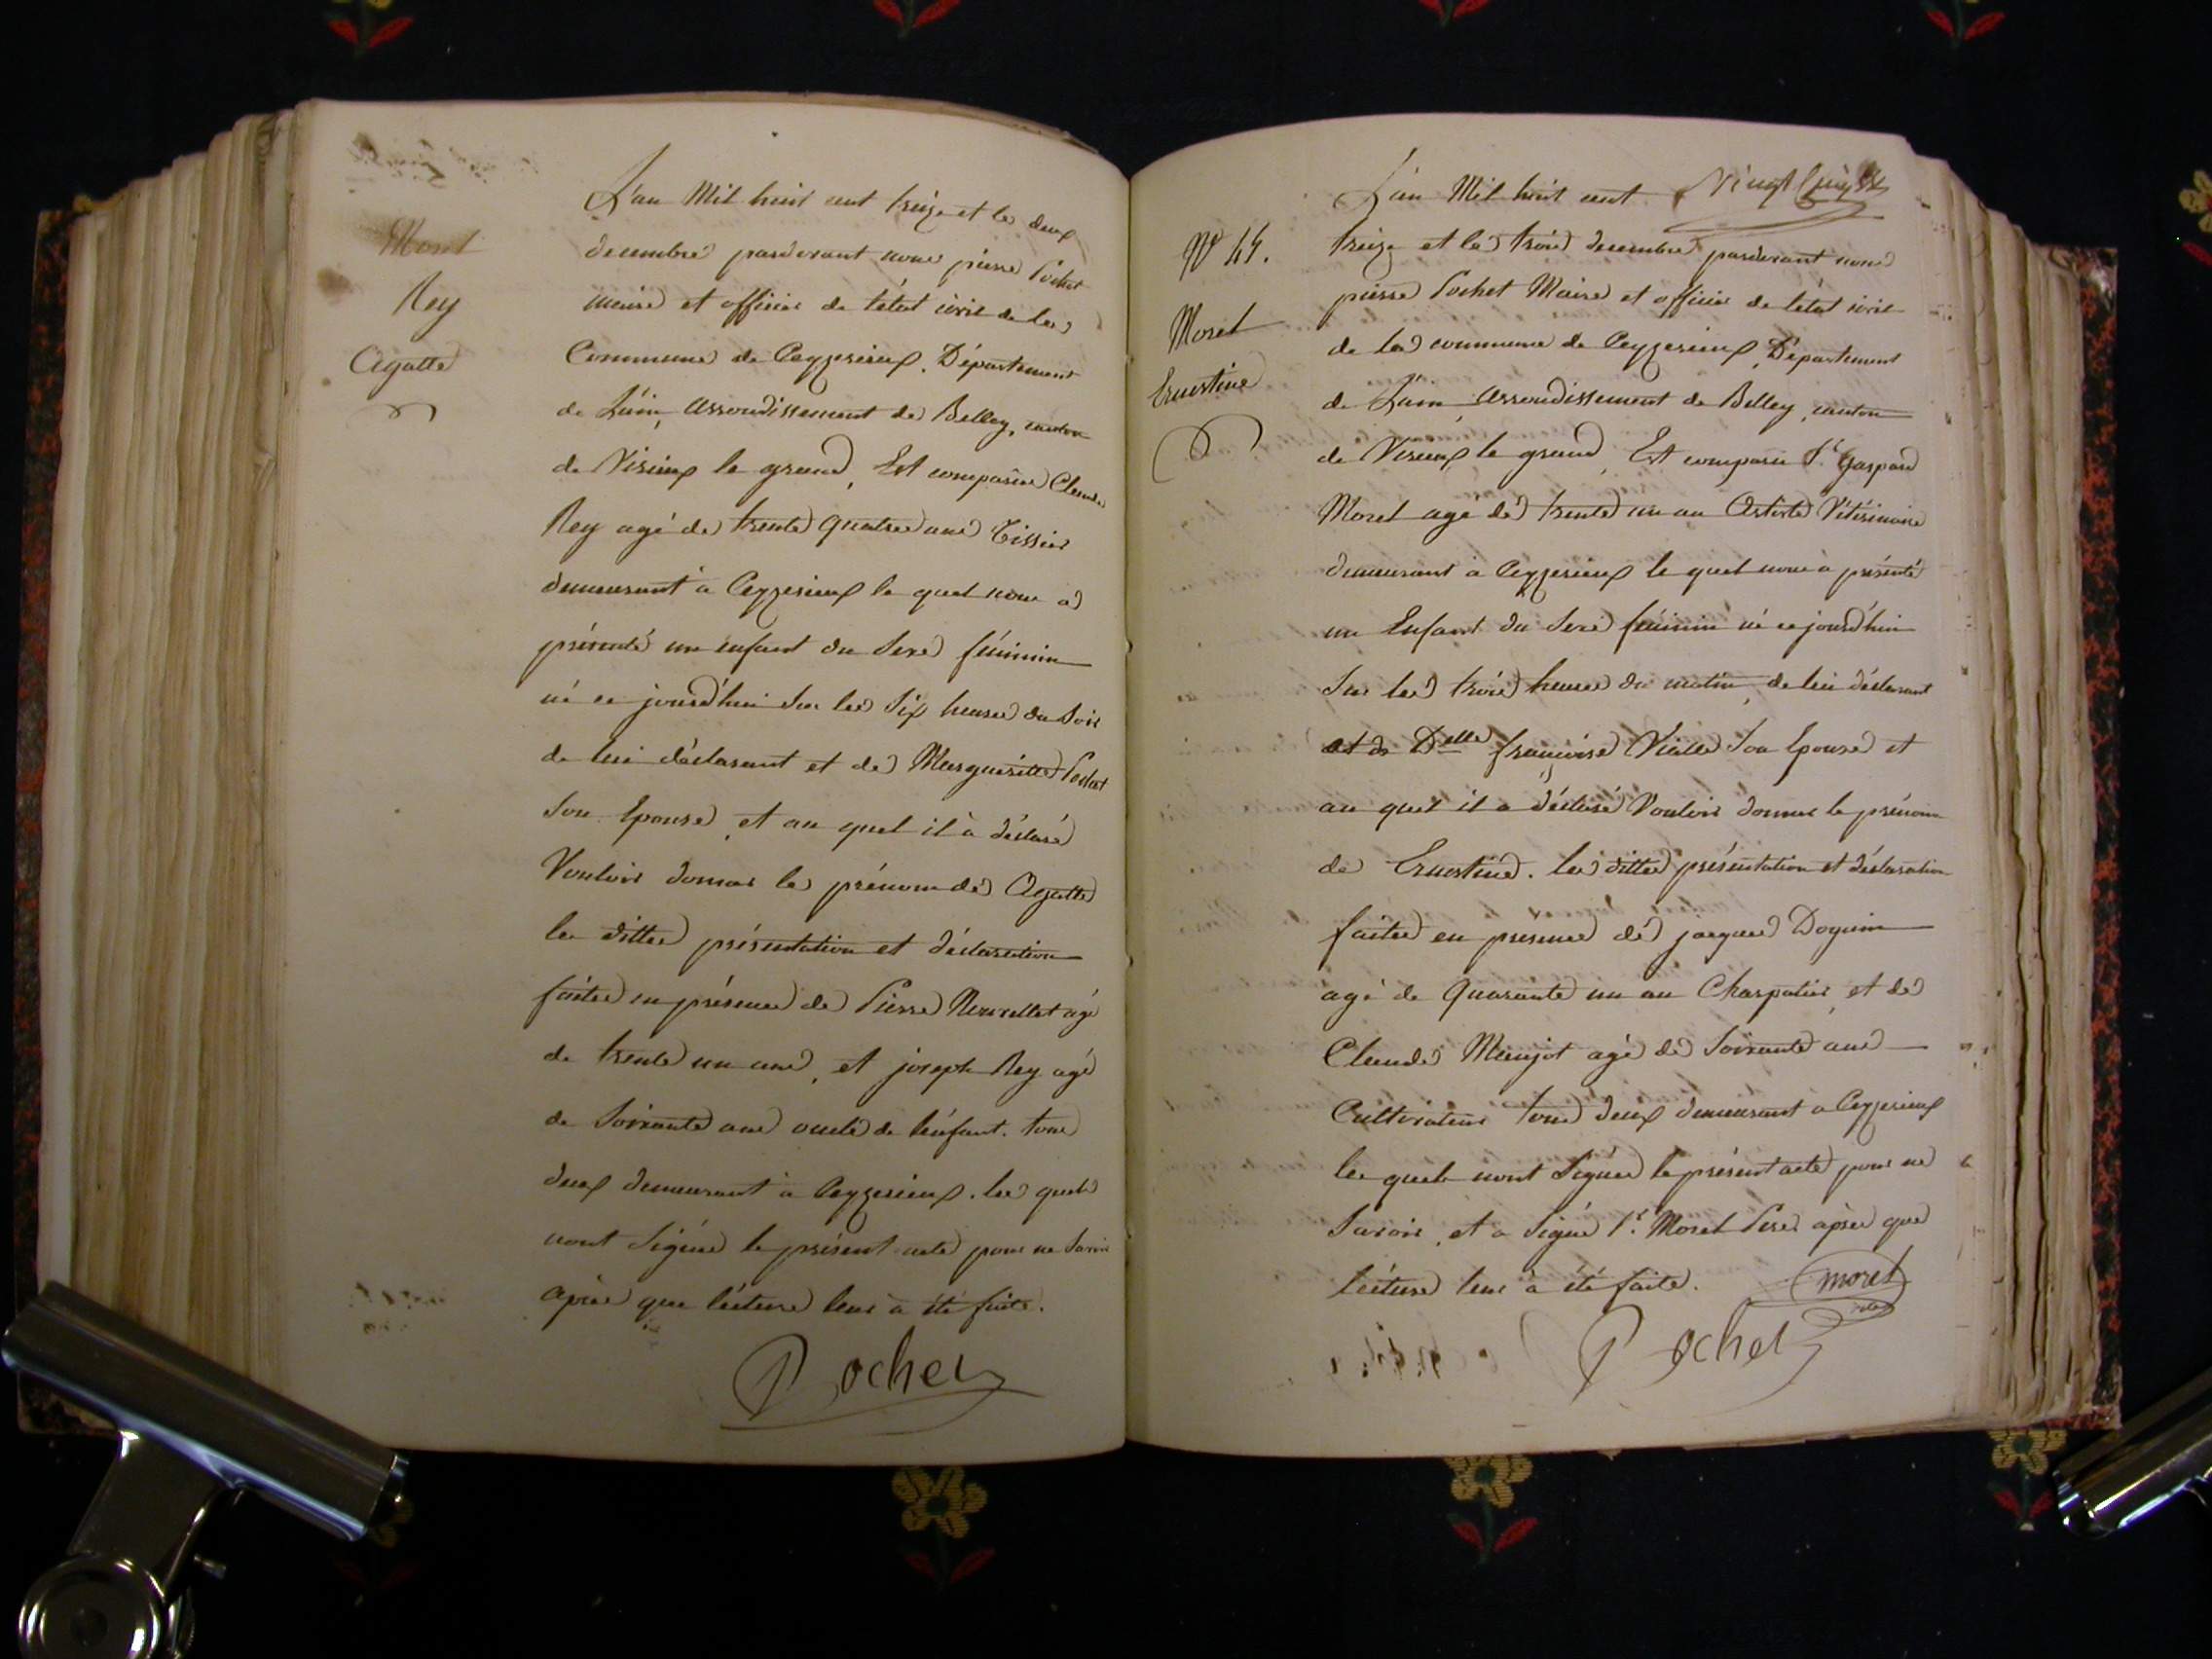 Moret
Rey
Agatte
L'an Mil huit cent treize et le deux
decembre pardevant nous pierre Pochet
maire et officier de l'état civil de la
Commune de Ceyzerieux, Département
de L'ain, arrondissement de Belley, canton
de Virieux le grand, Est comparu Claude
Rey agé de trente quatre ans Tissier
demeurant à Ceyzerieux le quel nous a
présenté un enfant du Sexe féminin
né ce jourd'hui Sur les Six heures du Soir
de lui déclarant et de Margueritte Pochet
Son Epouse, et au quel il à déclaré
Vouloir donner le prénom de Agatte
les dittes présentation et déclaration
faites en présence de Pierre agé
de trente un ans, et joseph Rey agé
de Soixante ans oncle de l'énfant. tous
deux demeurant à Ceyzerieux. les quels
nont Signés le présent acte pour ne Savoir
après que lécture leur à été faite.
Pochet
Vingt
N° 44.
Moret
Ernestine
L'an Mil huit cent
treize et le trois decembre pardevant nous
pierre Pochet Maire et officier de l'état civil
de la commune de Ceyzerieux, Département
de L'ain arrondissement de Belley, canton
de Virieux le grand, Est comparu Sr. Gaspard
Moret age de trente un an Artiste Vétérinaire
demeurant à Ceyzerieux le quel nous à présenté
un Enfant du Sexe féminin né ce jourd'hui
Sur les trois heures du matin, de lui déclarant
et de Delle françoise Vialle Son Epouse et
au quel il a déclaré Vouloir donner le prénom
de Ernestine. les dittes présentation et déclaration
faites en presence de jacques Doguin
agé de Quarante un an Charpatier et de
Claude Manjot agé de Soixante ans
Cultivateur tous deux demeurant a Ceyzerieux
les quels nont Signés le présent acte pour ne
Savoir, et a Signé Sr. Moret Pere après que
lécture leur à été faite.
moret
Pochet